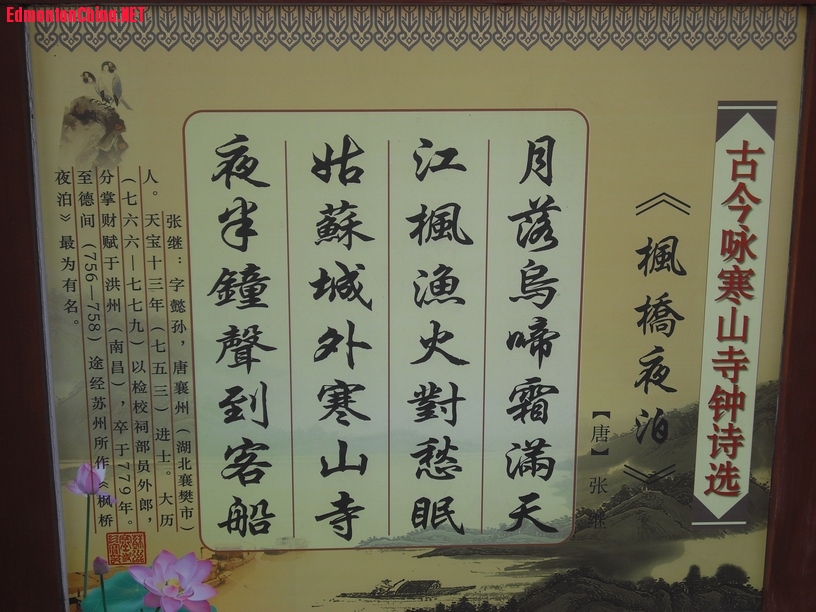 EdmontonChina.NET
古今咏寒山寺钟诗选
《楓橋夜泊》
【唐】 张继
月落烏啼霜滿天
江楓漁火對愁眠
姑蘇城外寒山寺
夜半鐘聲到客船
张继：字懿孙，唐襄州（湖北襄樊市）
人。天宝十三年（七五三）进士。大历
（七六六—七七九）以检校祠部员外郎，
分掌财赋于洪州（南昌），卒于779年。
至德间（756—758）途经苏州所作《枫桥
夜泊》最为有名。